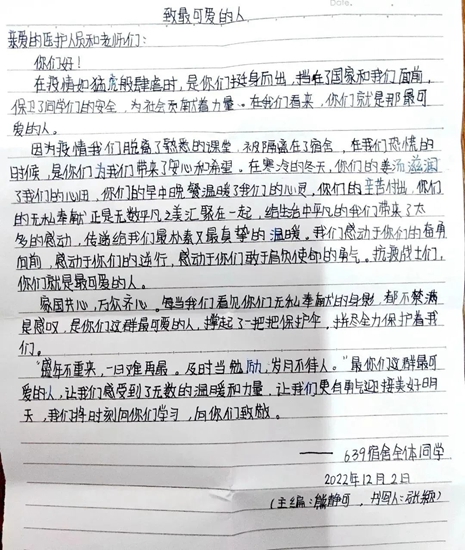 Date.
致最可爱的人
亲爱的医护人员和老师们：
你们好！
在疫情如猛虎般肆虐时，是你们挺身而出，挡在了国家和我们面前，
保卫了同学们的安全，为社会贡献着力量。在我们看来，你们就是那最可
爱的人。
因为疫情我们脱离了熟悉的课堂，被隔离在宿舍，在我们恐慌的
时候，是你们为我们带来了安心和希望。在寒冷的冬天，你们的姜汤滋润
了我们的心田，你们的早中晚餐温暖了我们的心灵，你们的辛苦付出，你们
的无私奉献正是无数平凡之美汇聚在一起，给生活中平凡的我们带来了太
多的感动，传递给我们最朴素又最真挚的温暖。我们感动于你们的奋勇
向前，感动于你们的逆行，感动于你们敢于肩负使命的勇气。抗疫战士们，
你们就是最可爱的人。
家国共心，万众齐心。每当我们看见你们无私奉献的身影，都不禁满
是感叹，是你们这群最可爱的人，撑起了一把把保护伞，拼尽全力保护着我
们。
“盛年不重来，一日难再晨。及时当勉励，岁月不待人。”最你们这群最可
爱的人，让我们感受到了无数的温暖和力量，让我们更有勇气迎接美好明
天，我们将时刻向你们学习，向你们致敬。
——639宿舍全体同学
2022年12月2日
（主编：静可，书写人：张）